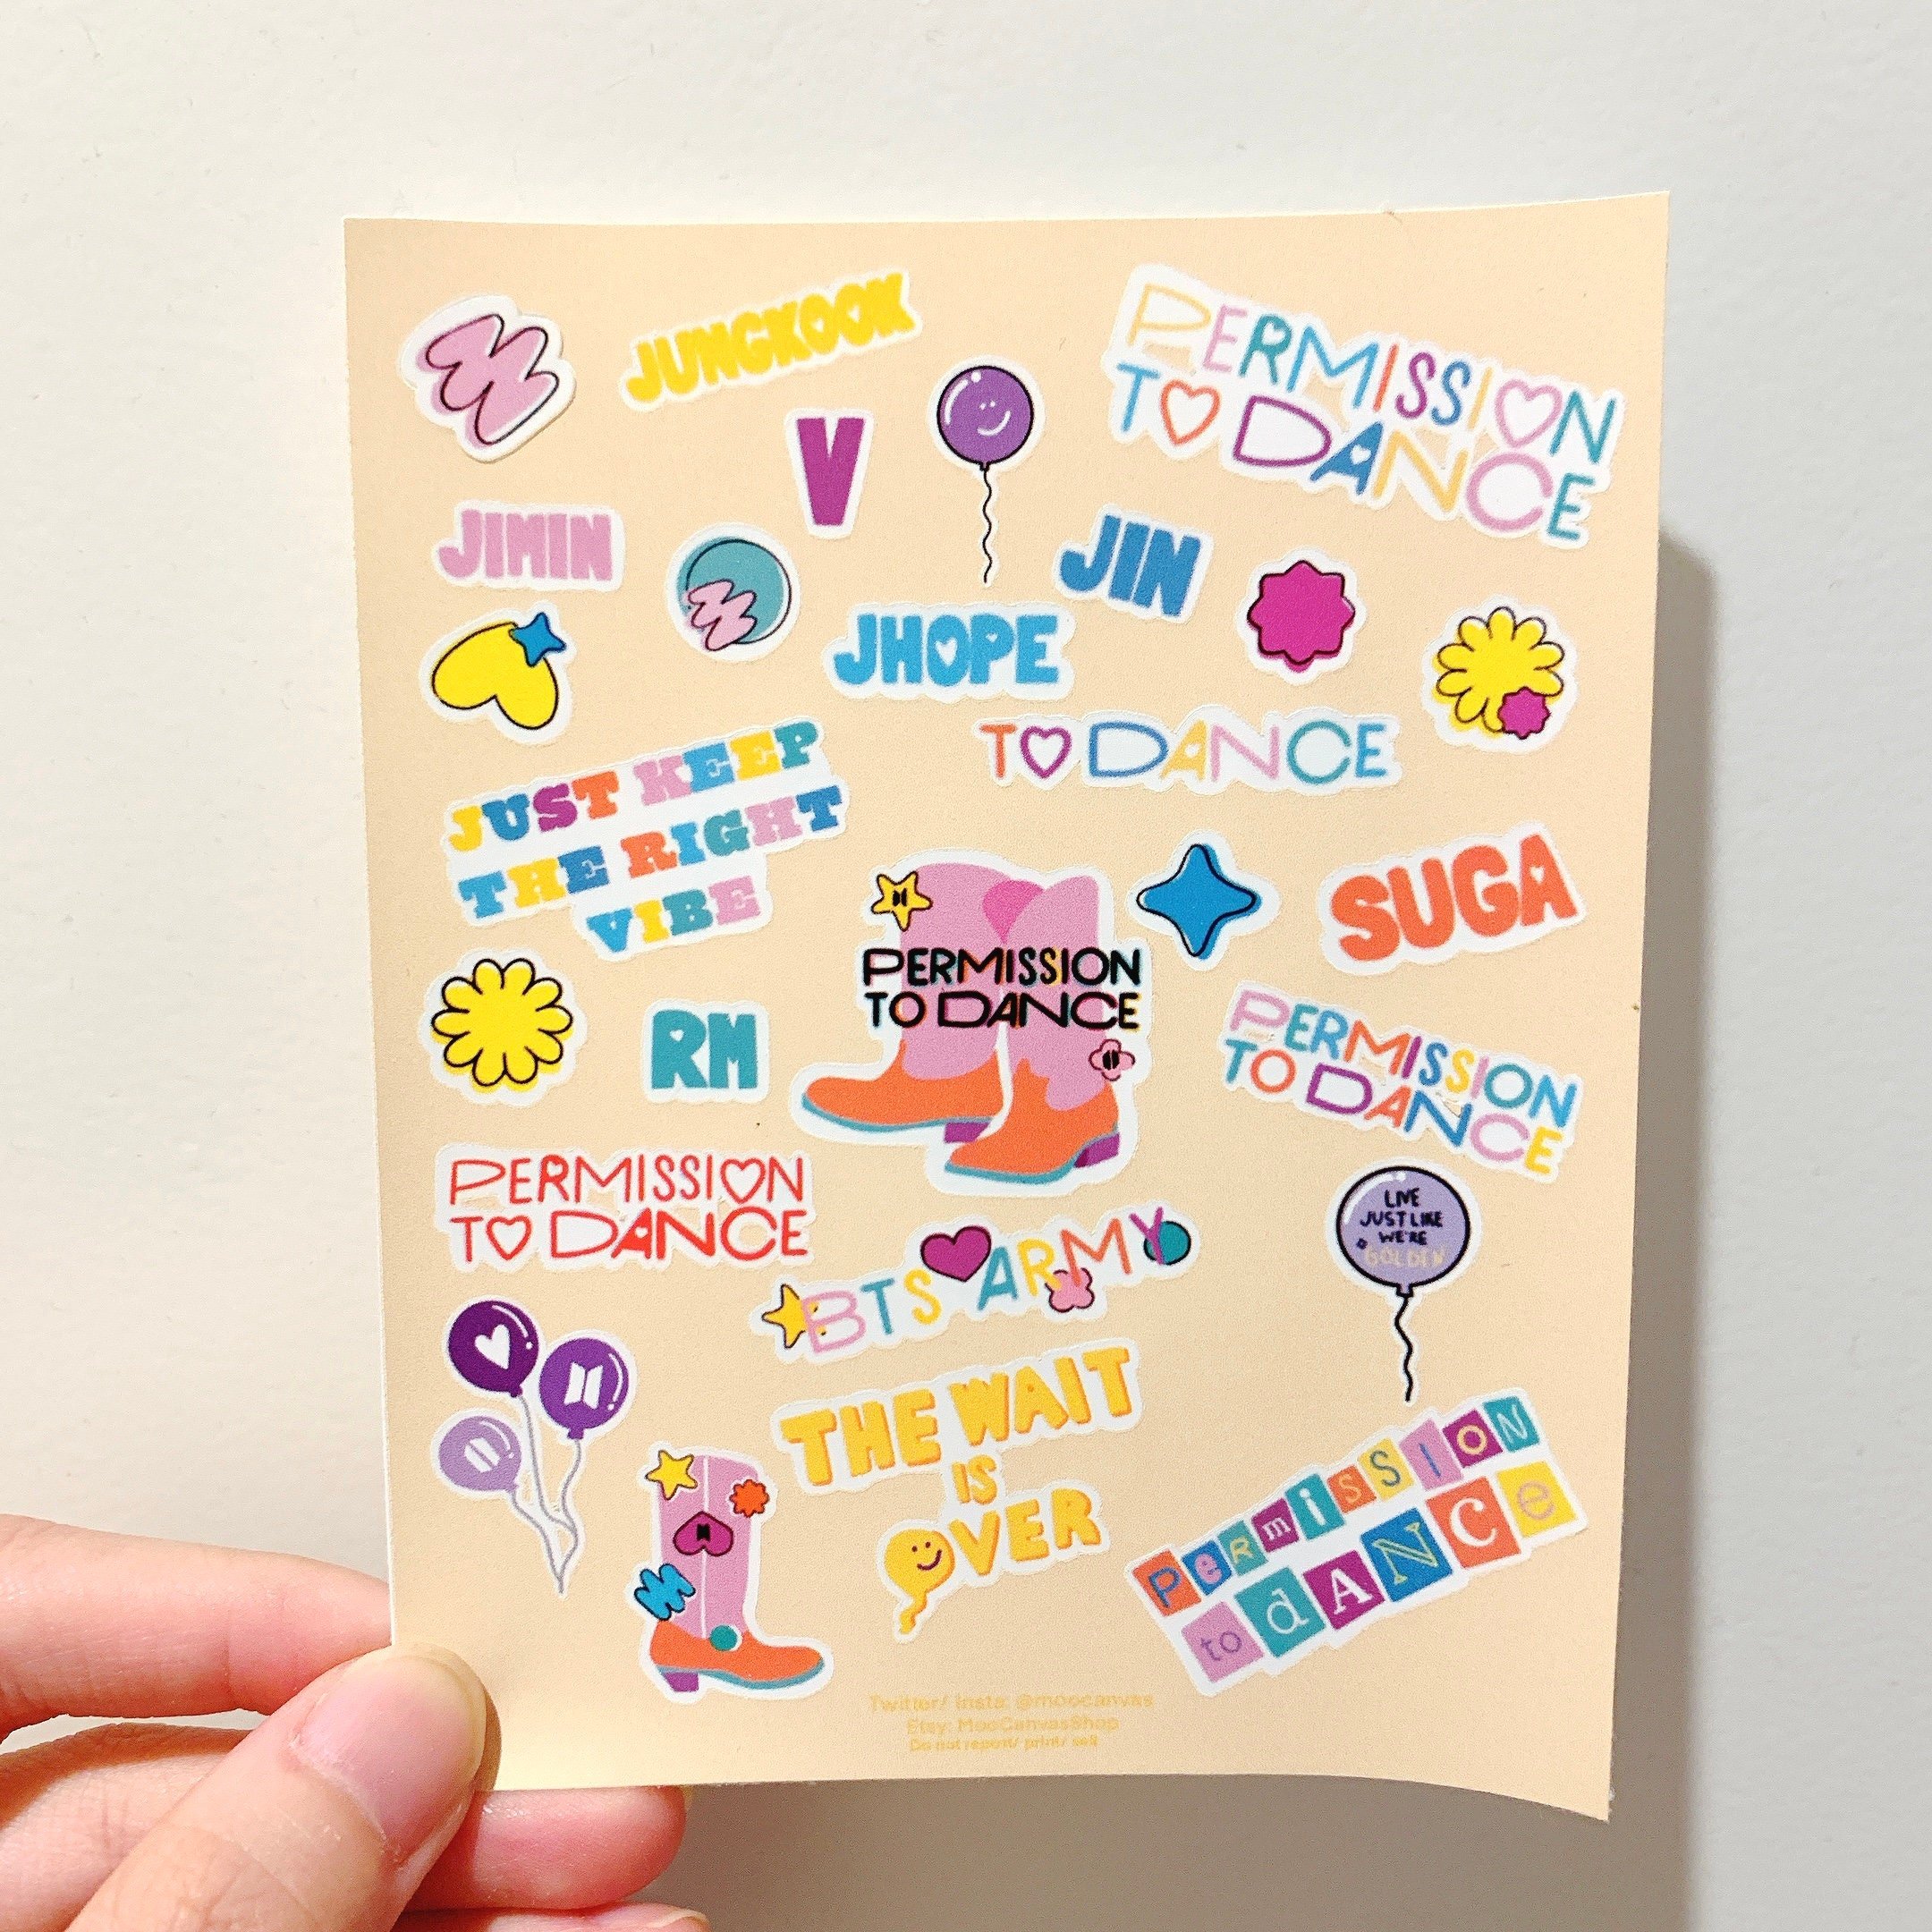 JUNGKOOK
PERMISSION
TO DANCE
V
JIMIN
JIN
JHOPE
TO DANCE
JUST KEEP
THE RIGHT
VIBE
SUGA
PERMISSION
TO DANCE
RM
PERMISSION
TO DANCE
PERMISSION
TO DANCE
LIVE
JUST LIKE
WE'RE
GOLDEN
BTS ARMY
THE WAIT
IS
OVER
PermissIoN
to dANCe
Twitter/ Insta: @moocanvas
Etsy: MooCanvasShop
Do not repost/ print/ sell